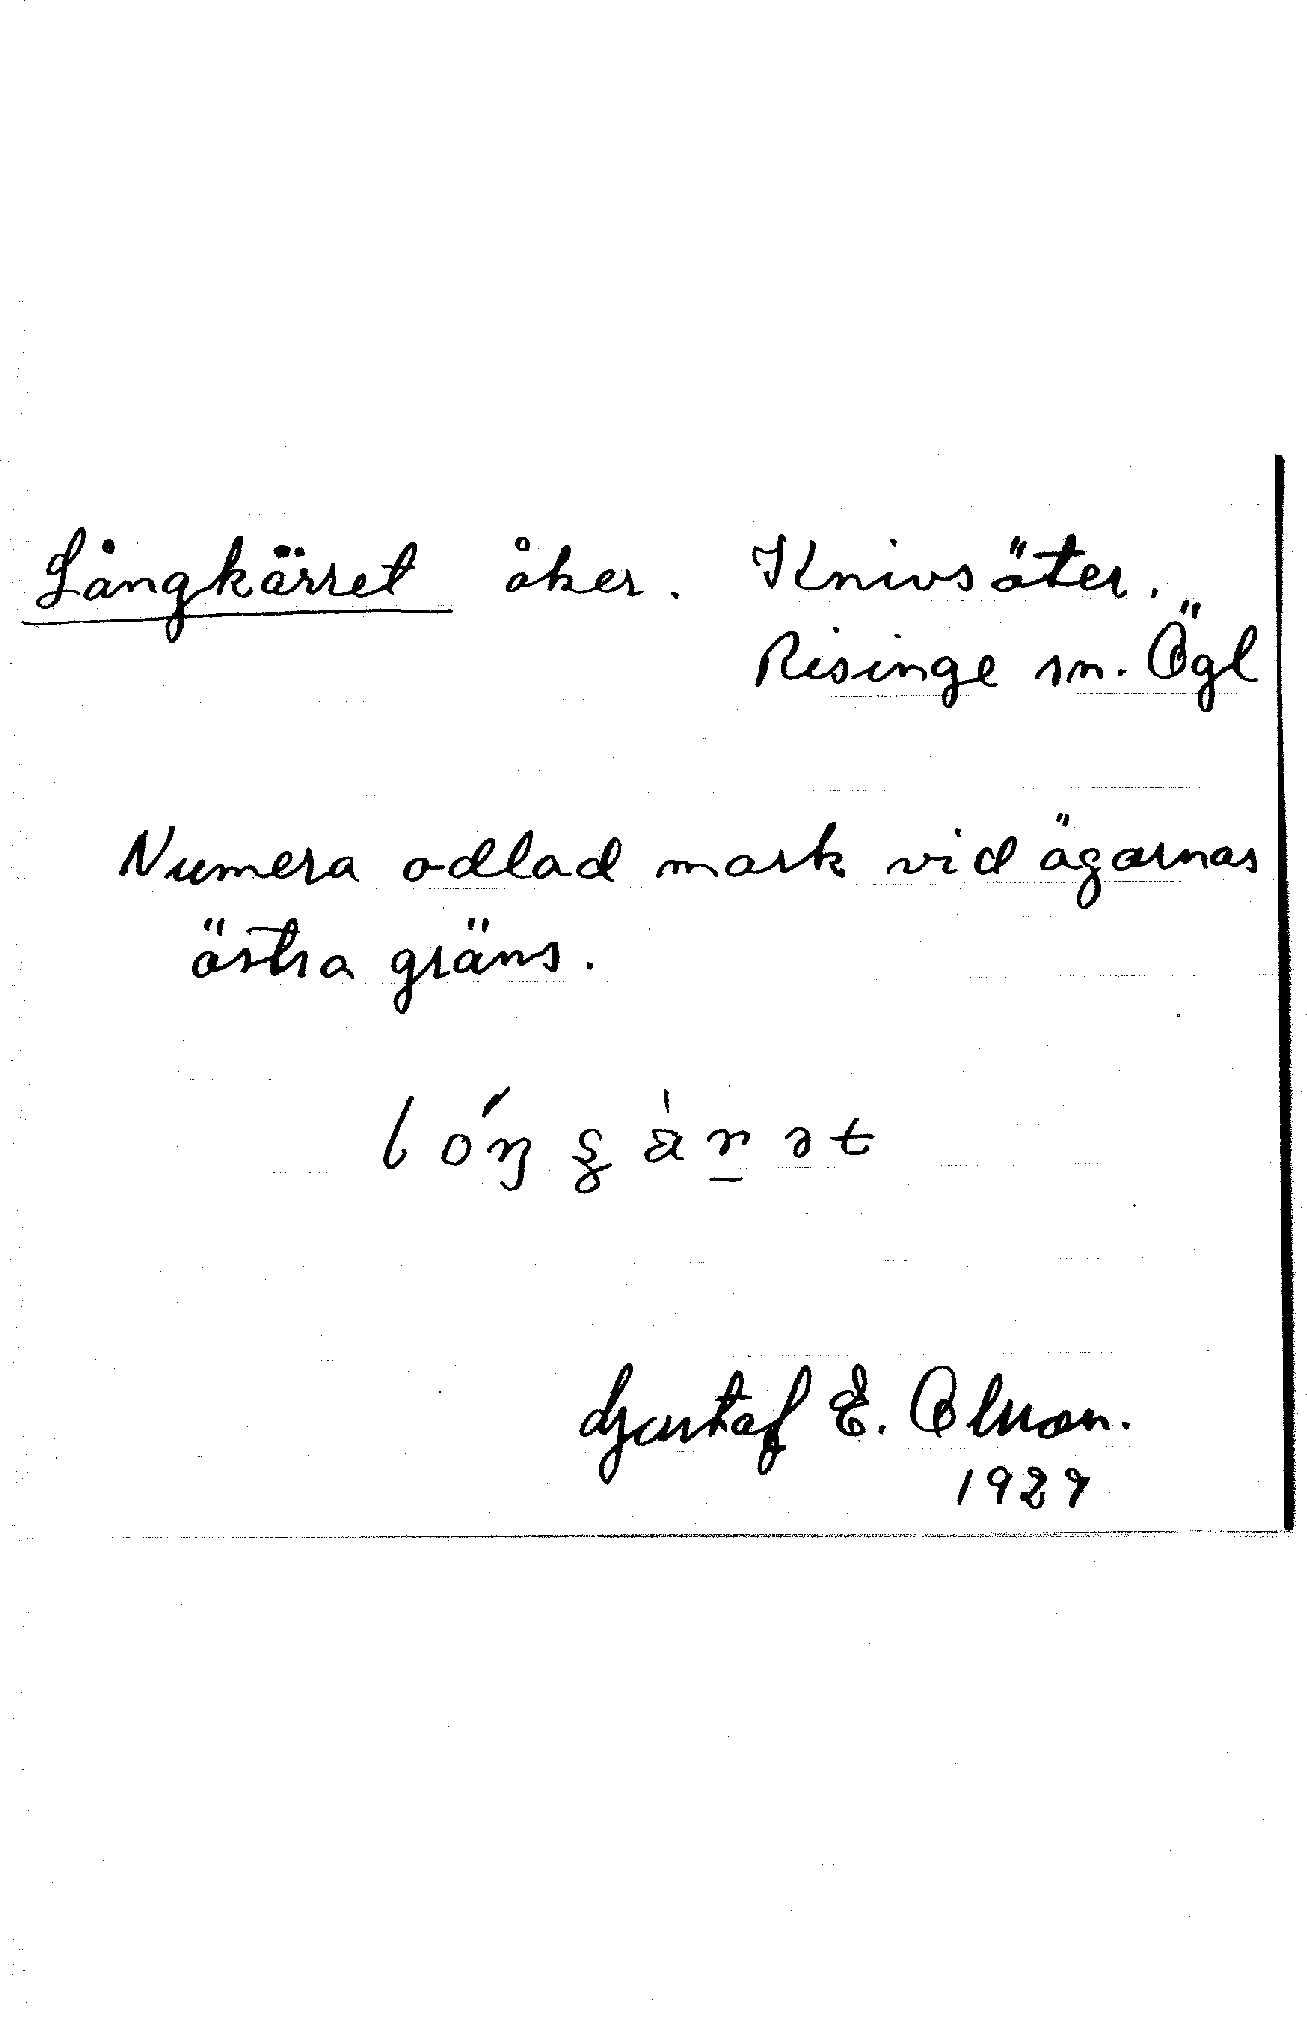 Långkärret åker. Knivsäter.
Risinge sn. Ögl
Numera odlad mark vid ägornas
östra gräns.
Gustaf E. Olson.
1929